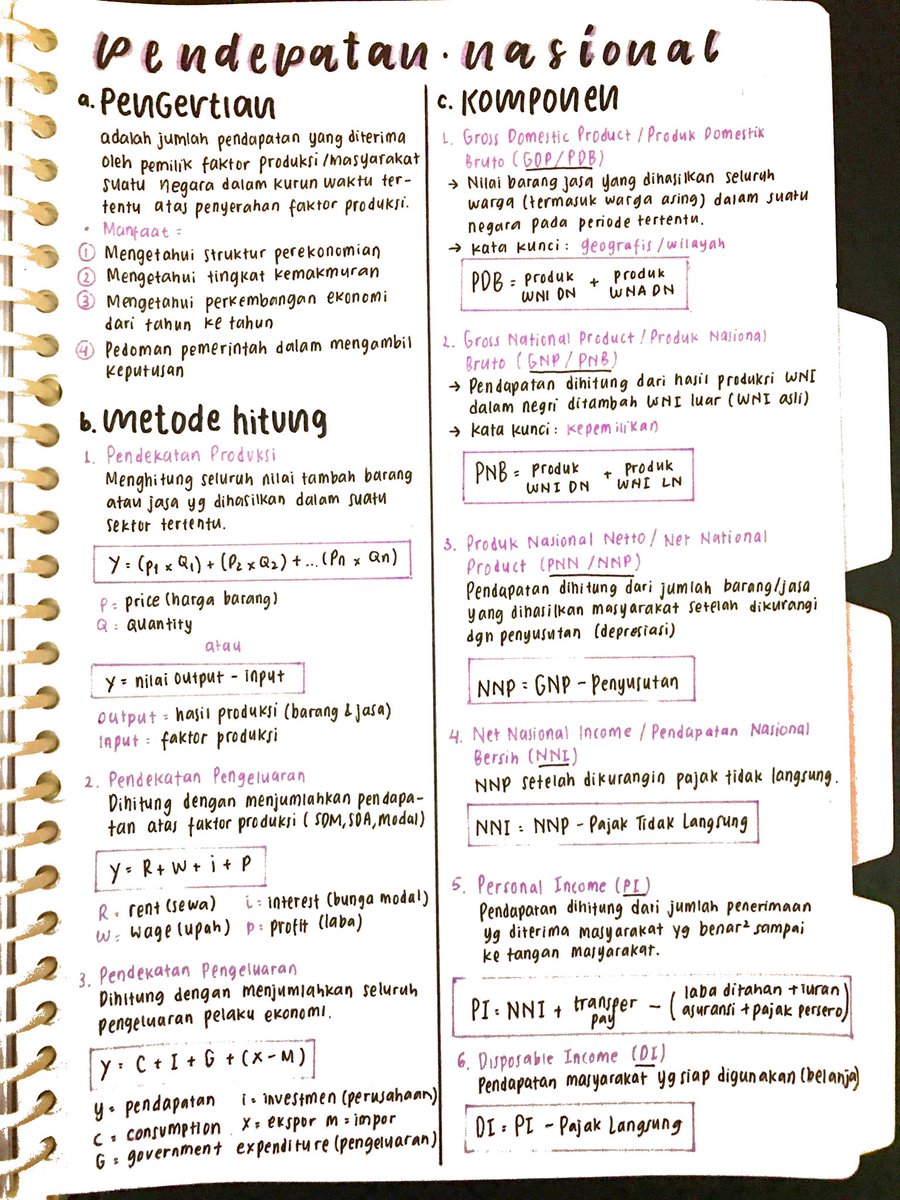 Pendepatan · nasional
a. Pengertian
adalah jumlah pendapatan yang diterima
oleh pemilik faktor produksi/masyarakat
suatu negara dalam kurun waktu ter-
tentu atas penyerahan faktor produksi.
• Manfaat =
① Mengetahui struktur perekonomian
② Mengetahui tingkat kemakmuran
③ Mengetahui perkembangan ekonomi
dari tahun ke tahun
④ Pedoman pemerintah dalam mengambil
keputusan
b. Metode hitung
1. Pendekatan Produksi
Menghitung seluruh nilai tambah barang
atau jasa yg dihasilkan dalam suatu
sektor tertentu.
Y = (P1 x Q1) + (P2 x Q2) + ... (Pn x Qn)
P = price (harga barang)
Q = Quantity
atau
Y = nilai output - input
Output = hasil produksi (barang & jasa)
Input = faktor produksi
2. Pendekatan Pengeluaran
Dihitung dengan menjumlahkan pendapa-
tan atas faktor produksi (SDM, SDA, Modal)
Y = R + W + i + P
R = rent (sewa) i = interest (bunga modal)
W = wage (upah) P = profit (laba)
3. Pendekatan Pengeluaran
Dihitung dengan menjumlahkan seluruh
pengeluaran pelaku ekonomi.
Y = C + I + G + (X - M)
y = pendapatan i = investmen (perusahaan)
C = consumption X = ekspor M = impor
G = government expenditure (pengeluaran)
c. Komponen
1. Gross Domestic Product / Produk Domestik
Bruto (GDP / PDB)
→ Nilai barang jasa yang dihasilkan seluruh
warga (termasuk warga asing) dalam suatu
negara pada periode tertentu.
→ kata kunci : geografis / wilayah
PDB = produk WNI DN + produk WNA DN
2. Gross National Product / Produk Nasional
Bruto (GNP / PNB)
→ Pendapatan dihitung dari hasil produksi WNI
dalam negri ditambah WNI luar (WNI asli)
→ kata kunci : kepemilikan
PNB = produk WNI DN + produk WNI LN
3. Produk Nasional Netto / Net National
Product (PNN / NNP)
Pendapatan dihitung dari jumlah barang/jasa
yang dihasilkan masyarakat setelah dikurangi
dgn penyusutan (depresiasi)
NNP = GNP - Penyusutan
4. Net Nasional Income / Pendapatan Nasional
Bersih (NNI)
NNP setelah dikurangin pajak tidak langsung.
NNI = NNP - Pajak Tidak Langsung
5. Personal Income (PI)
Pendapatan dihitung dari jumlah penerimaan
yg diterima masyarakat yg benar² sampai
ke tangan masyarakat.
PI = NNI + transper pay - (laba ditahan + iuran asuransi + pajak persero)
6. Disposable Income (DI)
Pendapatan masyarakat yg siap digunakan (belanja)
DI = PI - Pajak Langsung